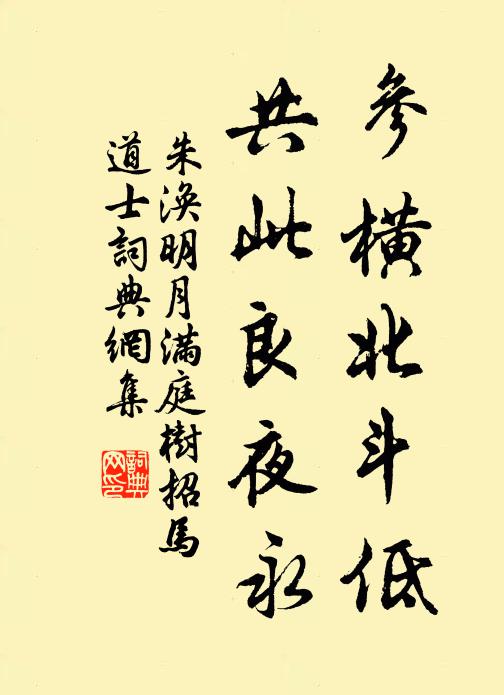 參橫北斗低
共此良夜永
朱渙明月滿庭樹招馬
道士詞典網集
詞典网印